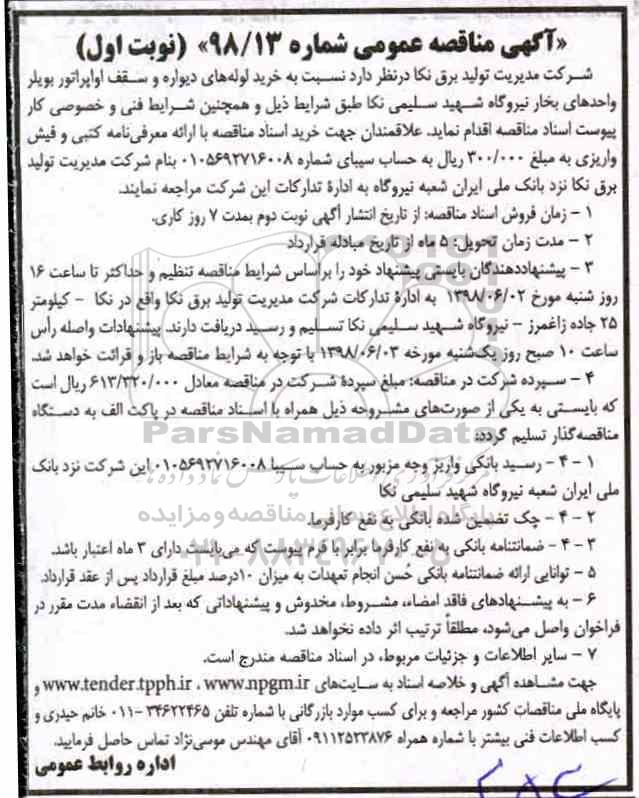 «آگهی مناقصه عمومی شماره ۹۸/۱۳» (نوبت اول)
شرکت مدیریت تولید برق نکا درنظر دارد نسبت به خرید لوله‌های دیواره و سقف اواپراتور بویلر
واحدهای بخار نیروگاه شهید سلیمی نکا طبق شرایط ذیل و همچنین شرایط فنی و خصوصی کار
پیوست اسناد مناقصه اقدام نماید. علاقمندان جهت خرید اسناد مناقصه با ارائه معرفی‌نامه کتبی و فیش
واریزی به مبلغ ۳۰۰/۰۰۰ ریال به حساب سیبای شماره ۰۱۰۵۶۹۲۷۱۶۰۰۸ بنام شرکت مدیریت تولید
برق نکا نزد بانک ملی ایران شعبه نیروگاه به ادارهٔ تدارکات این شرکت مراجعه نمایند.
۱ – زمان فروش اسناد مناقصه: از تاریخ انتشار آگهی نوبت دوم بمدت ۷ روز کاری.
۲ – مدت زمان تحویل: ۵ ماه از تاریخ مبادله قرارداد
۳ – پیشنهاددهندگان بایستی پیشنهاد خود را براساس شرایط مناقصه تنظیم و حداکثر تا ساعت ۱۶
روز شنبه مورخ ۱۳۹۸/۰۶/۰۲ به ادارهٔ تدارکات شرکت مدیریت تولید برق نکا واقع در نکا – کیلومتر
۲۵ جاده زاغمرز – نیروگاه شهید سلیمی نکا تسلیم و رسید دریافت دارند. پیشنهادات واصله رأس
ساعت ۱۰ صبح روز یک‌شنبه مورخه ۱۳۹۸/۰۶/۰۳ با توجه به شرایط مناقصه باز و قرائت خواهد شد.
۴ – سپرده شرکت در مناقصه: مبلغ سپردهٔ شرکت در مناقصه معادل ۶۱۳/۳۲۰/۰۰۰ ریال است
که بایستی به یکی از صورت‌های مشروحه ذیل همراه با اسناد مناقصه در پاکت الف به دستگاه
مناقصه‌گذار تسلیم گردد:
ParsNamadData
۱ – ۴ – رسید بانکی واریز وجه مزبور به حساب سیبا ۰۱۰۵۶۹۲۷۱۶۰۰۸ این شرکت نزد بانک
ملی ایران شعبه نیروگاه شهید سلیمی نکا
پایگاه اطلاع رسانی مناقصه و مزایده
۲ – ۴ – چک تضمین شده بانکی به نفع کارفرما.
۳ – ۴ – ضمانتنامه بانکی به نفع کارفرما برابر با فرم پیوست که می‌بایست دارای ۳ ماه اعتبار باشد.
۵ – توانایی ارائه ضمانتنامه بانکی حُسن انجام تعهدات به میزان ۱۰درصد مبلغ قرارداد پس از عقد قرارداد.
۶ – به پیشنهادهای فاقد امضاء، مشروط، مخدوش و پیشنهاداتی که بعد از انقضاء مدت مقرر در
فراخوان واصل می‌شود، مطلقاً ترتیب اثر داده نخواهد شد.
۷ – سایر اطلاعات و جزئیات مربوط، در اسناد مناقصه مندرج است.
جهت مشاهده آگهی و خلاصه اسناد به سایت‌های www.npgm.ir ، www.tender.tpph.ir و
پایگاه ملی مناقصات کشور مراجعه و برای کسب موارد بازرگانی با شماره تلفن ۳۴۶۲۲۴۶۵ – ۰۱۱ خانم حیدری و
کسب اطلاعات فنی بیشتر با شماره همراه ۰۹۱۱۲۵۲۳۸۷۶ آقای مهندس موسی‌نژاد تماس حاصل فرمایید.
اداره روابط عمومی